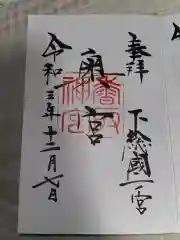 奉拝
下総國一宮
香取神宮
令和三年十二月七日